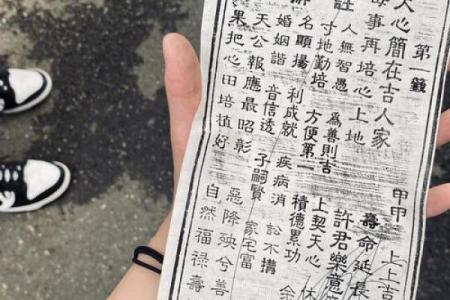 第一籤 甲甲 上上吉
天心簡在吉人家 壽命延長
每事再培心上地 許君樂意
註 人無智愚 為善則吉 上契天心 休
寸地勤培 方便第一 積德累功
名顯揚 利成就 疾病消 訟不搆
婚姻諧 音信透 子嗣賢 家宅富
天公報應最昭彰 惡降殃兮善
果把心田培植好 自然福祿壽